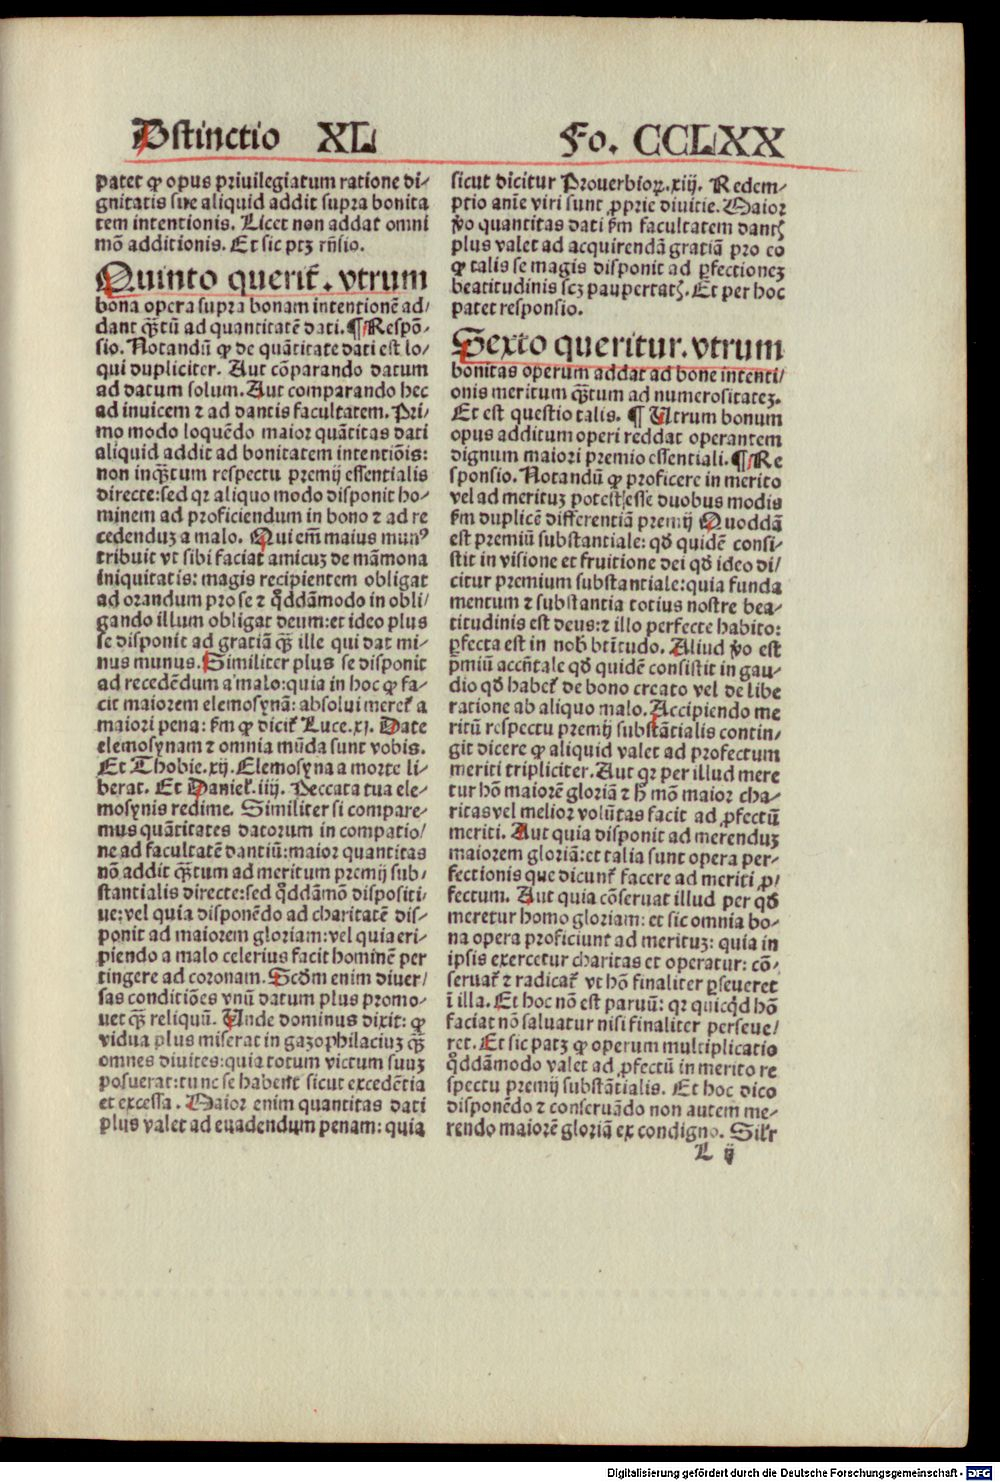 Distinctio XL Fo. CCLXX
patet ꝙ opus priuilegiatum ratione di⸗
gnitatis siue aliquid addit supra bonita
tem intentionis. Licet non addat omni
mõ additionis. Et sic ptꝫ rñsio.
Quinto querit᷑. vtrum
bona opera supra bonam intentionẽ ad⸗
dant qᷓꝫtũ ad quantitatẽ dati. ¶ Respõ⸗
sio. Notandũ ꝙ de quãtitate dati est lo⸗
qui dupliciter. Aut cõparando datum
ad datum solum. Aut comparando hec
ad inuicem ⁊ ad dantis facultatem. Pri⸗
mo modo loquẽdo maior quãtitas dati
aliquid addit ad bonitatem intentiõis:
non inqᷓꝫtum respectu premij essentialis
directe: sed qꝛ aliquo modo disponit ho⸗
minem ad proficiendum in bono ⁊ ad re
cedenduꝫ a malo. Qui em̃ maius munꝰ
tribuit vt sibi faciat amicuꝫ de mãmona
iniquitatis: magis recipientem obligat
ad orandum pro se ⁊ qͦddãmodo in obli⸗
gando illum obligat deum: et ideo plus
se disponit ad gratiã qᷓꝫ ille qui dat mi⸗
nus munus. Similiter plus se disponit
ad recedẽdum a malo: quia in hoc ꝙ fa⸗
cit maiorem elemosynã: absolui meret᷑ a
maiori pena: ẜm ꝙ dicit᷑ Luce. xj. Date
elemosynam ⁊ omnia mũda sunt vobis.
Et Thobie. xij. Elemosyna a morte li⸗
berat. Et Daniel᷑. iiij. Peccata tua ele⸗
mosynis redime. Similiter si compare⸗
mus quãtitates datorum in compatio⸗
ne ad facultatẽ dantiũ: maior quantitas
nõ addit qᷓꝫtum ad meritum premij sub⸗
stantialis directe: sed qͦddãmodo dispositi⸗
ue: vel quia disponẽdo ad charitatẽ dis⸗
ponit ad maiorem gloriam: vel quia eri⸗
piendo a malo celerius facit hominẽ per
tingere ad coronam. Scd̃m enim diuer⸗
sas conditiões vnũ datum plus promo⸗
uet qᷓꝫ reliquũ. Unde dominus dixit: ꝙ
vidua plus miserat in gazophilaciuꝫ qᷓꝫ
omnes diuites: quia totum victum suuꝫ
posuerat: tunc se habent᷑ sicut excedẽtia
et excessa. Maior enim quantitas dati
plus valet ad euadendum penam: quia
sicut dicitur Prouerbioꝝ. xiij. Redem⸗
ptio anie viri sunt ꝓprie diuitie. Maior
ṽo quantitas dati ẜm facultatem dantꝭ
plus valet ad acquirendã gratiã pro eo
ꝙ talis se magis disponit ad ꝑfectioneꝫ
beatitudinis scꝫ paupertatꝭ. Et per hoc
patet responsio.
Sexto queritur. vtrum
bonitas operum addat ad bone intenti⸗
onis meritum qᷓꝫtum ad numerositateꝫ.
Et est questio talis. ¶ Utrum bonum
opus additum operi reddat operantem
dignum maiori premio essentiali. ¶ Re
sponsio. Notandũ ꝙ proficere in merito
vel ad merituꝫ potest esse duobus modis
ẜm duplicẽ differentiã premij Quoddã
est premiũ substantiale: qd̃ quidẽ consi⸗
stit in visione et fruitione dei qd̃ ideo di⸗
citur premium substantiale: quia funda
mentum ⁊ substantia totius nostre bea⸗
titudinis est deus: ⁊ illo perfecte habito:
ꝑfecta est in nob̃ btĩtudo. Aliud ṽo est
p̃miũ accñtale qd̃ quidẽ consistit in gau⸗
dio qd̃ habet᷑ de bono creato vel de libe
ratione ab aliquo malo. Accipiendo me
ritũ respectu premij substãtialis contin⸗
git dicere ꝙ aliquid valet ad profectum
meriti tripliciter. Aut qꝛ per illud mere
tur hõ maiorẽ gloriã ⁊ h̃ mõ maior cha⸗
ritas vel melior volũtas facit ad ꝓfectũ
meriti. Aut quia disponit ad merenduꝫ
maiorem gloriã: et talia sunt opera per⸗
fectionis que dicunt᷑ facere ad meriti ꝓ⸗
fectum. Aut quia cõseruat illud per qd̃
meretur homo gloriam: et sic omnia bo⸗
na opera proficiunt ad merituꝫ: quia in
ipsis exercetur charitas et operatur: cõ⸗
seruat᷑ ⁊ radicat᷑ vt hõ finaliter ꝑseueret
ĩ illa. Et hoc nõ est paruũ: qꝛ quicqͥd hõ
faciat nõ saluatur nisi finaliter perseue⸗
ret. Et sic patꝫ ꝙ operum multiplicatio
qͦddãmodo valet ad ꝓfectũ in merito re
spectu premij substãtialis. Et hoc dico
disponẽdo ⁊ conseruãdo non autem me⸗
rendo maiorẽ gloriã ex condigno. Sil᷑r
L ij
Digitalisierung gefördert durch die Deutsche Forschungsgemeinschaft - DFG